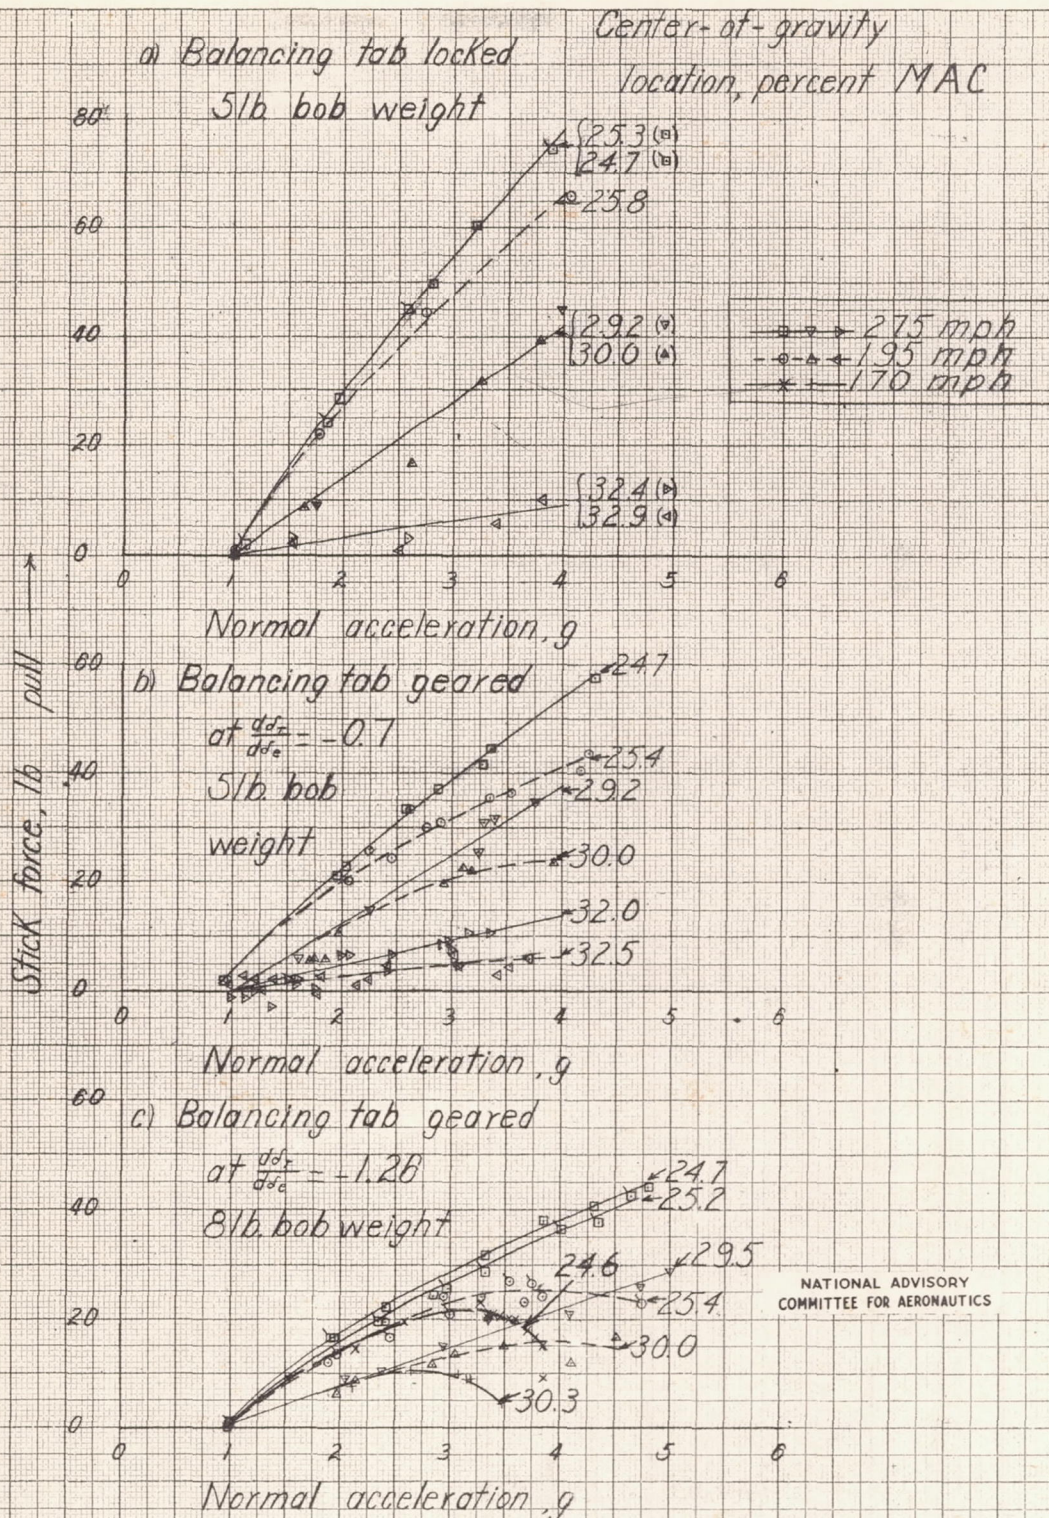 Center-of-gravity
location, percent MAC
a) Balancing tab locked
5lb. bob weight
80
60
40
20
0
25.3
24.7
25.8
29.2
30.0
32.4
32.9
275 mph
195 mph
170 mph
0 1 2 3 4 5 6
Normal acceleration, g
Stick force, lb pull
b) Balancing tab geared
at dδT/dδe = -0.7
5lb. bob
weight
60
40
20
0
24.7
25.4
29.2
30.0
32.0
32.5
0 1 2 3 4 5 6
Normal acceleration, g
c) Balancing tab geared
at dδT/dδe = -1.26
8lb. bob weight
60
40
20
0
24.7
25.2
29.5
24.6
25.4
30.0
30.3
NATIONAL ADVISORY
COMMITTEE FOR AERONAUTICS
0 1 2 3 4 5 6
Normal acceleration, g